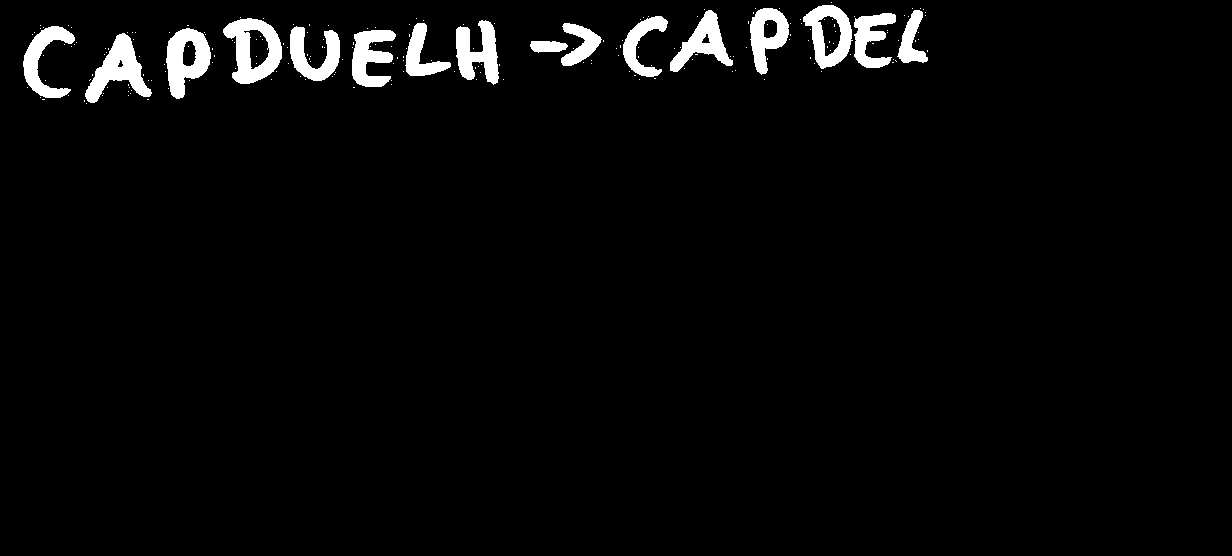 CAPDUELH -> CAPDEL